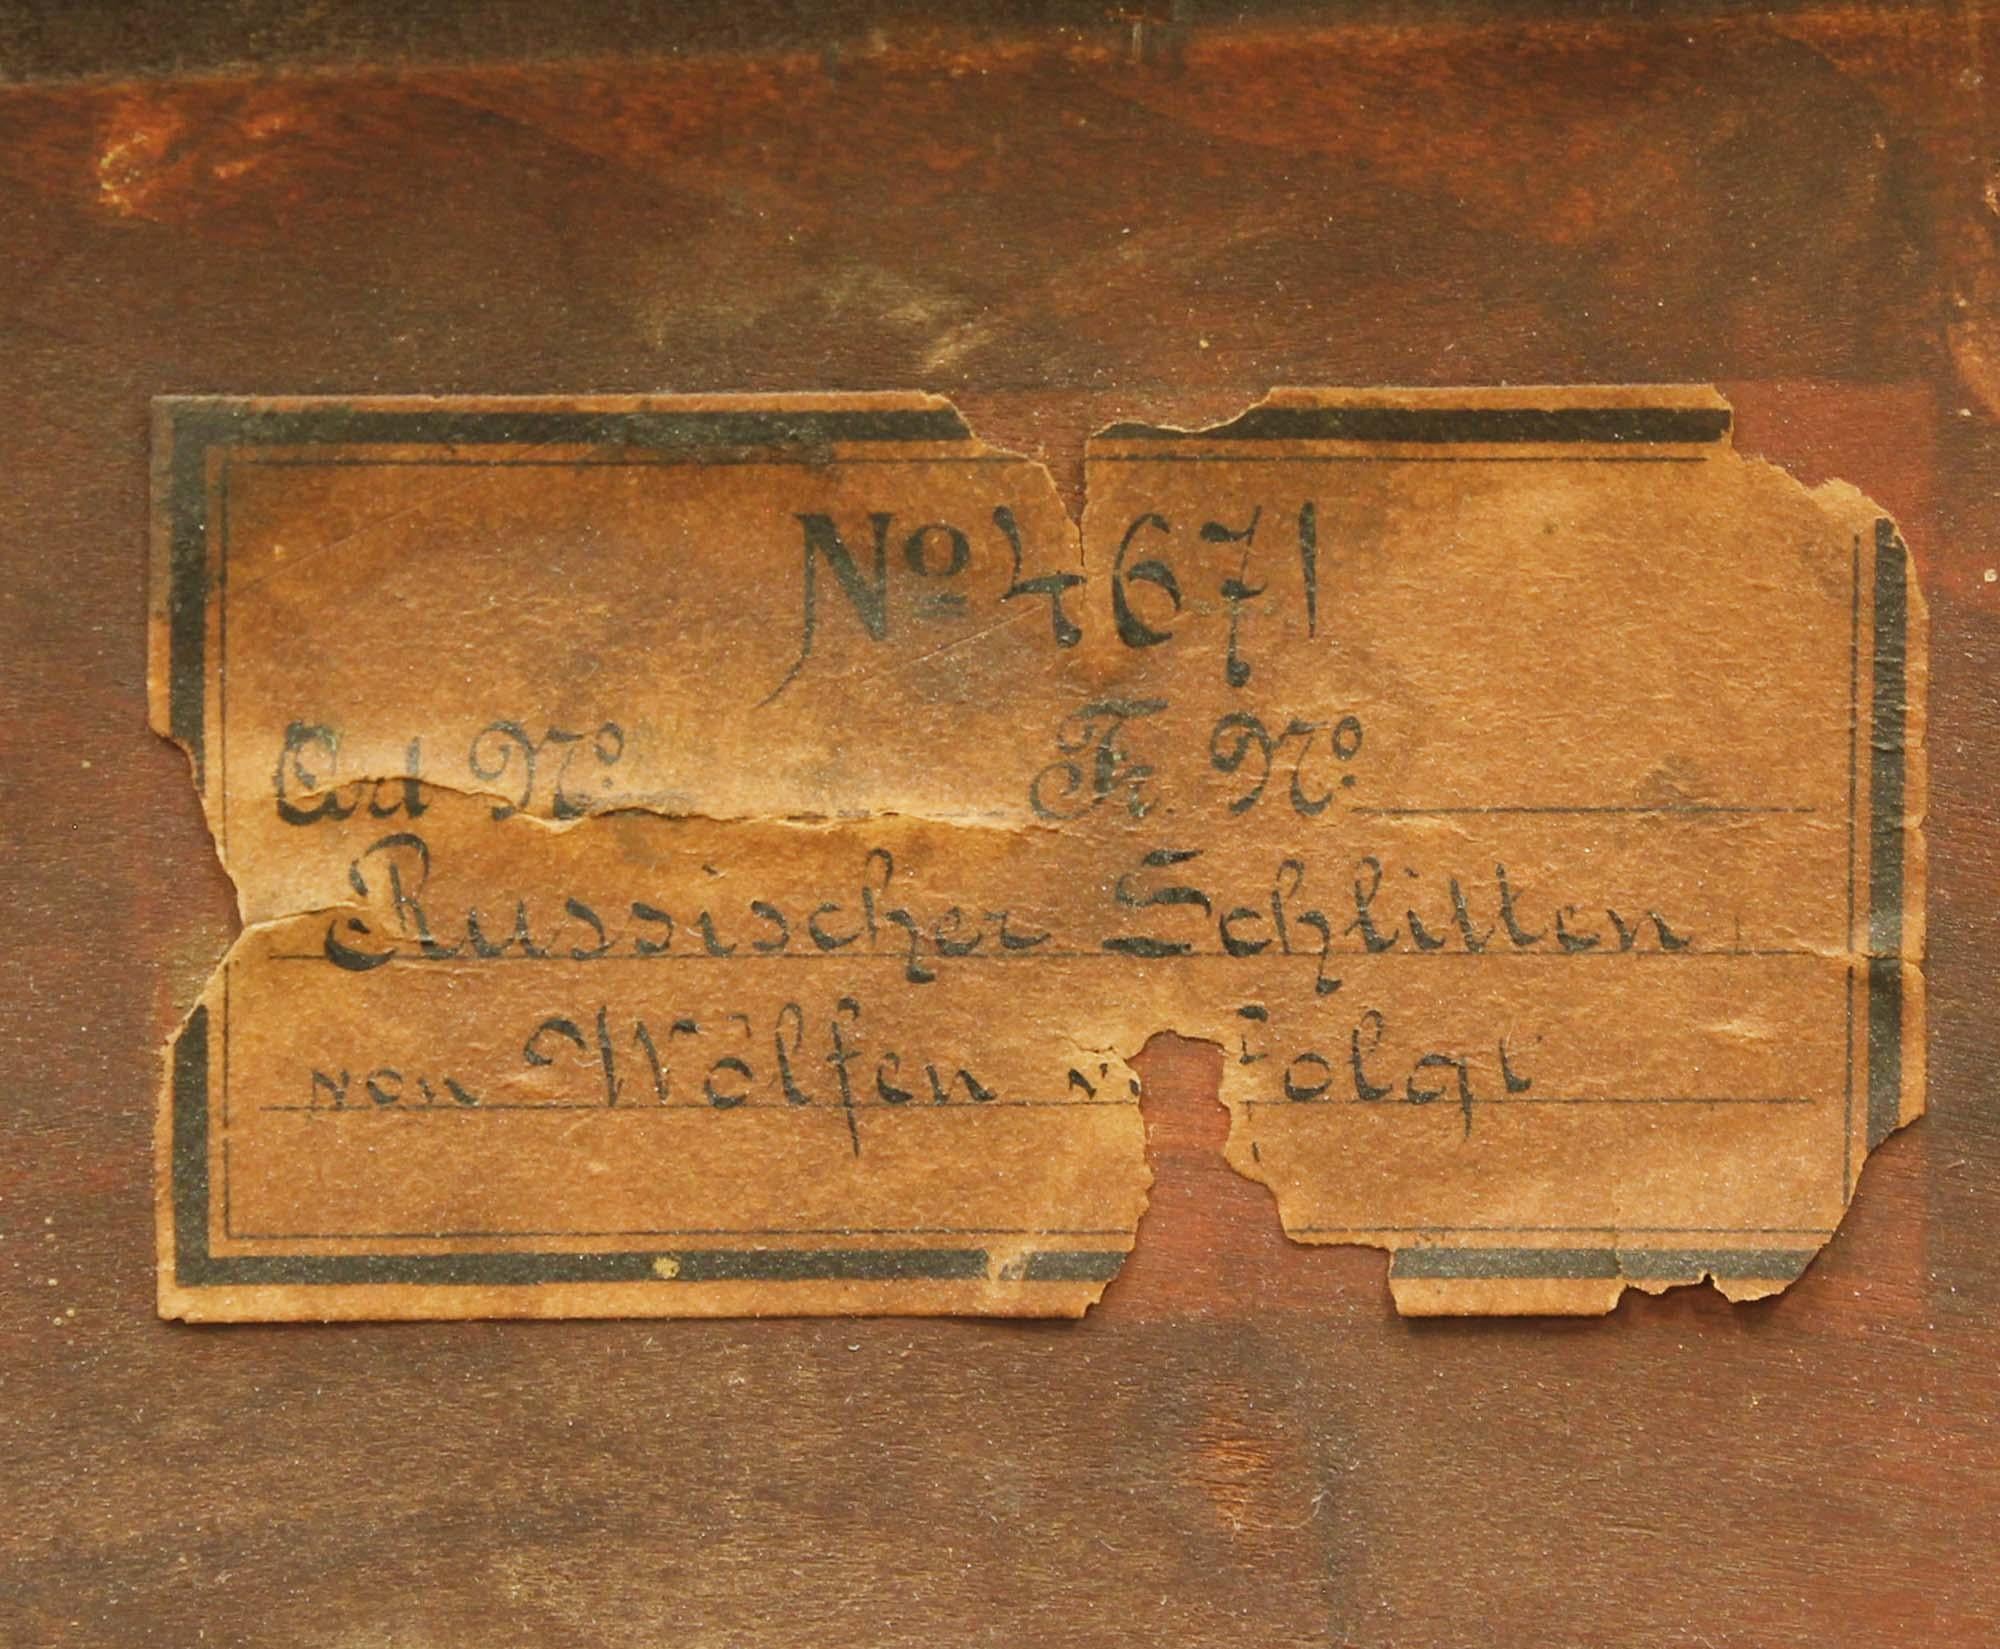 No 4671
Art No. Fr. No.
Russischer Schlitten
von Wölfen v. folgt